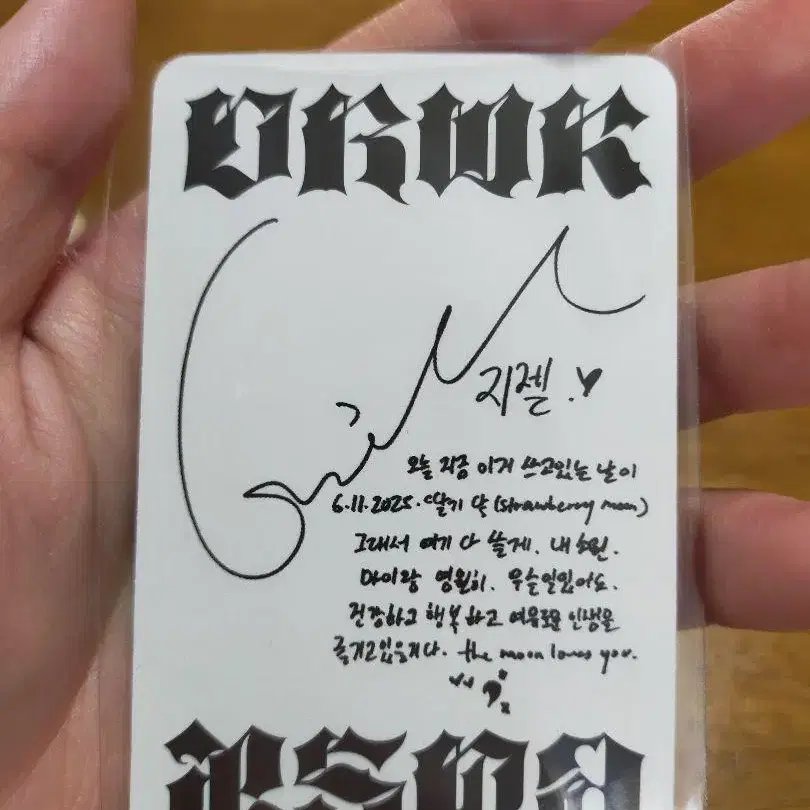 DRWK
지젤.
오늘 지금 이거 쓰고있는 날이
6.11.2025. 딸기 달 (strawberry moon)
그래서 여기 다 쓸게. 내 소원.
마이랑 영원히. 웃을일있어도.
건강하고 행복하고 여유로운 인생을
즐기고있음지다. the moon loves you.